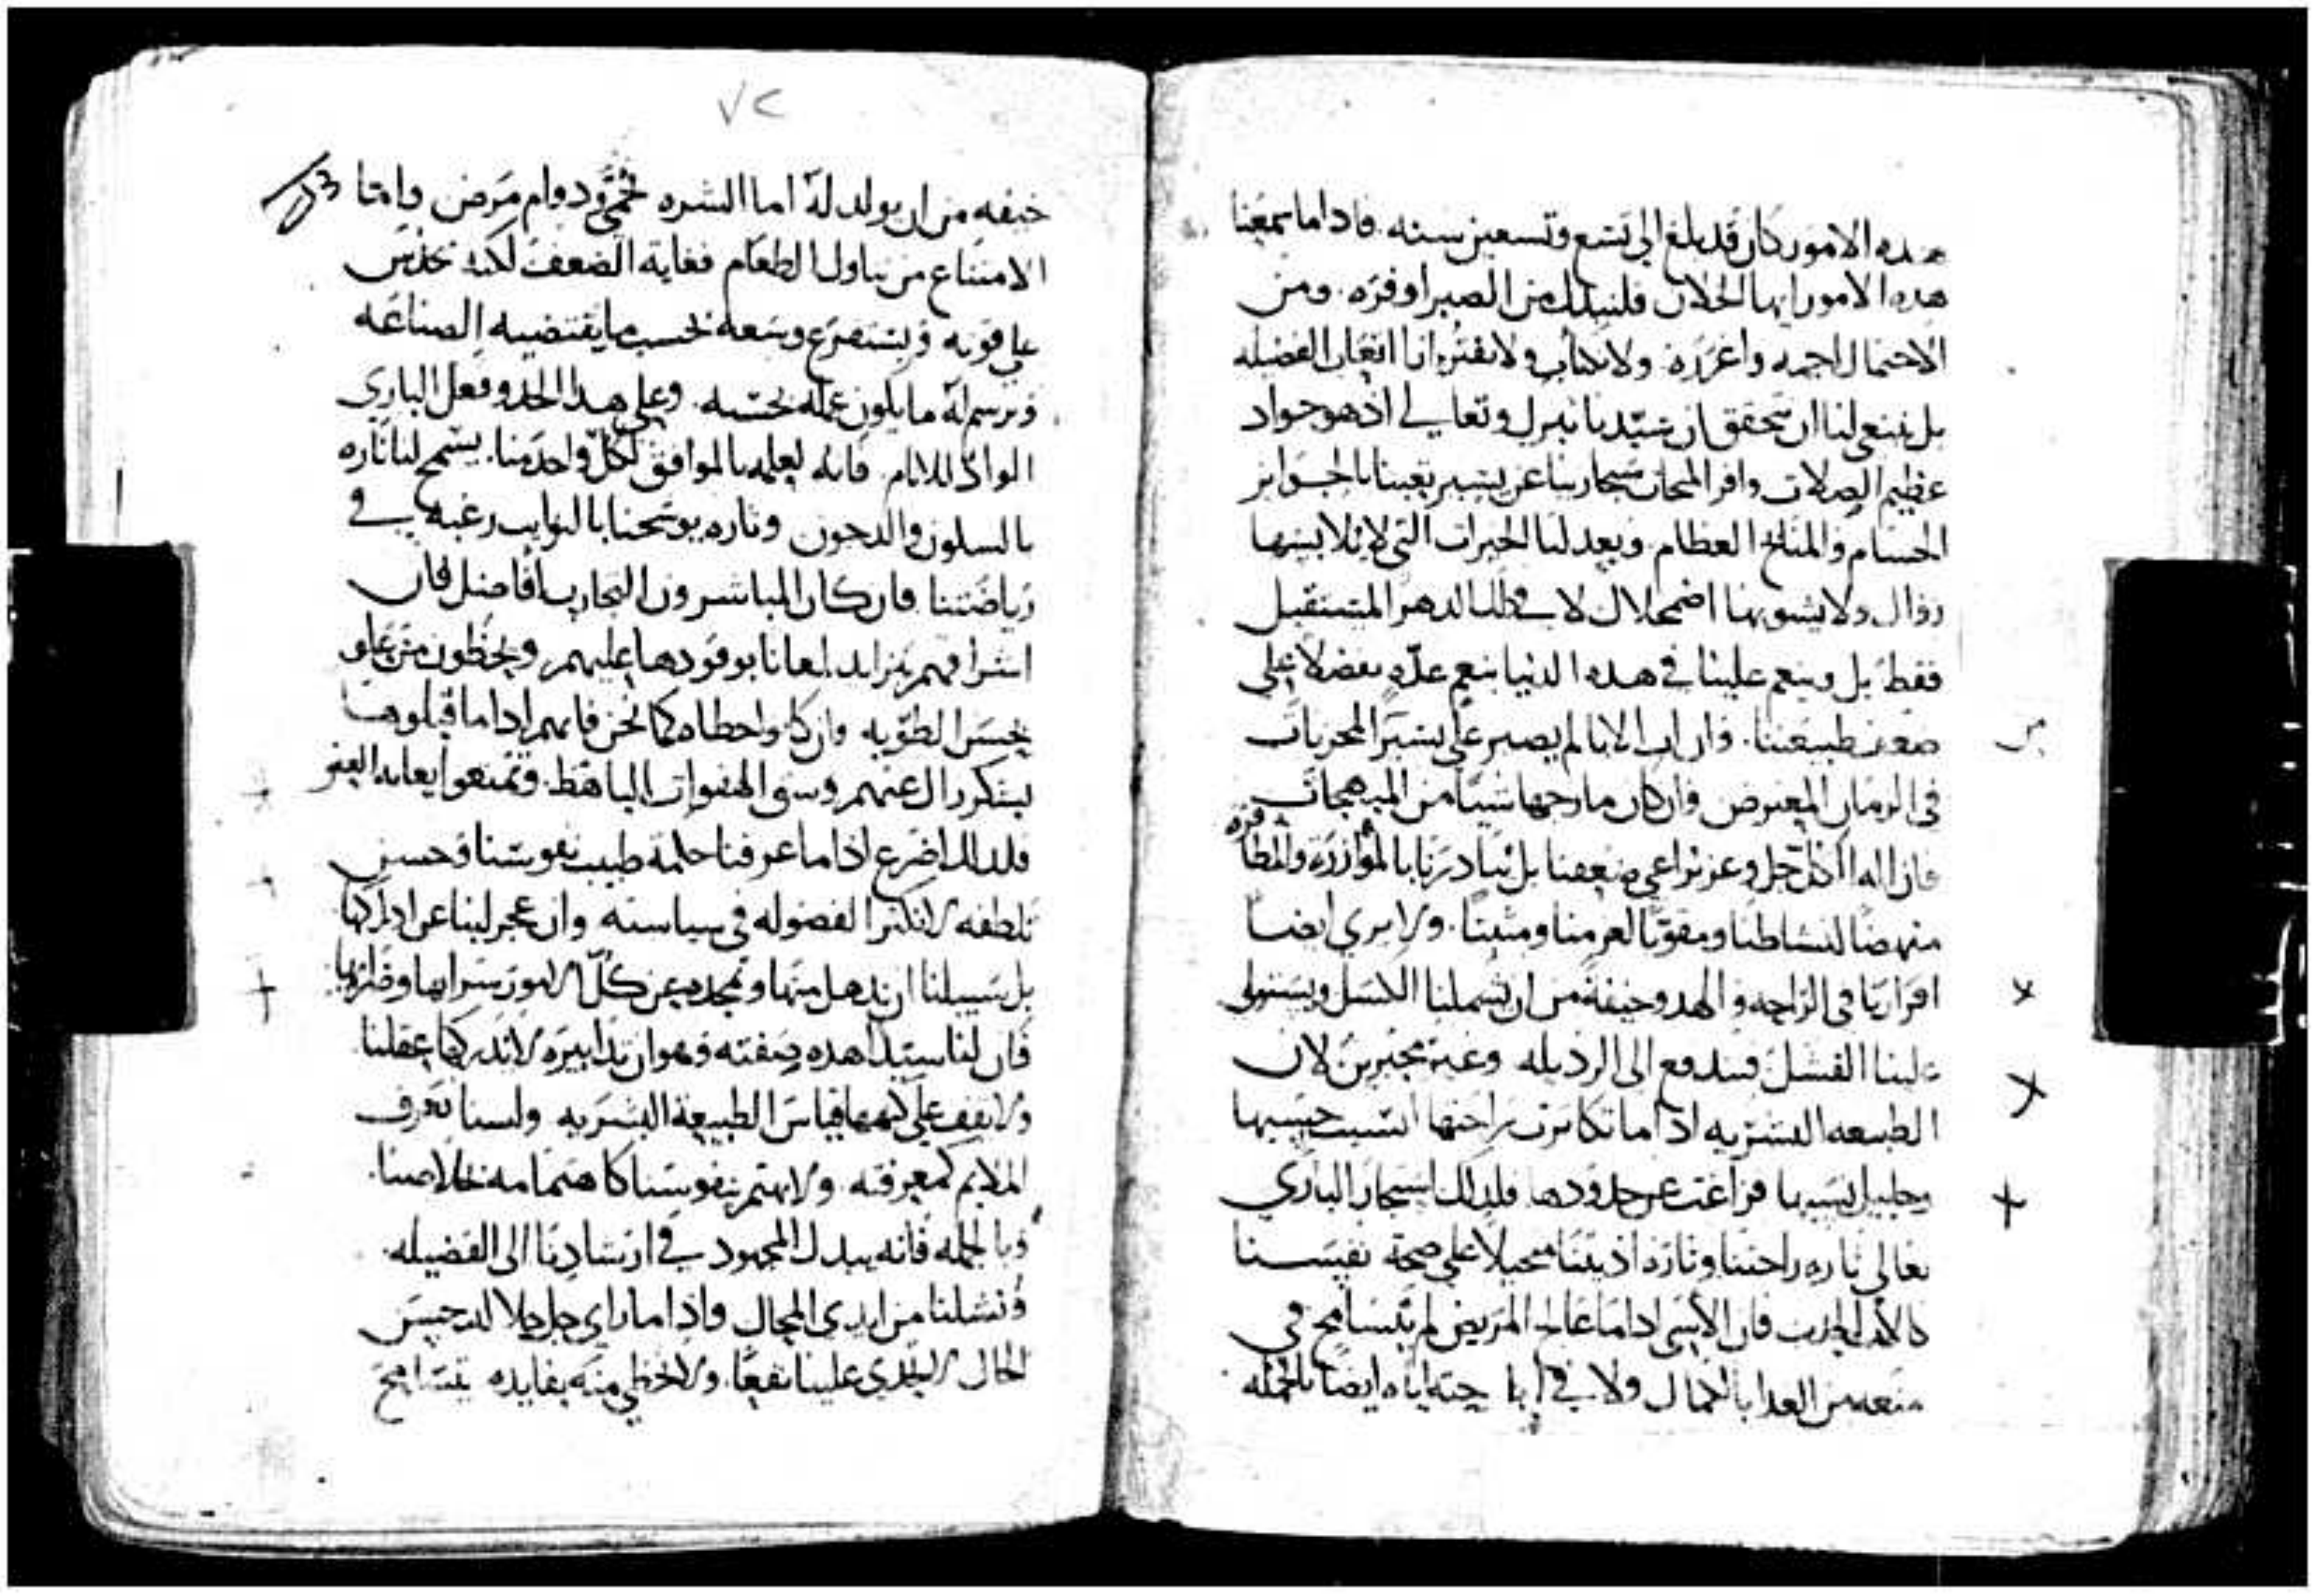 هده الامور كان قد بلغ الى تسع وتسعين سنه. فاداما سمعنا
هده الامور ايها الخلان فلنبدل من الصبر اوفره. ومن
الاحتمال اجمه واغزره. ولا نكتاب ولا نفتر اذا اتعاب الفضيله
بل ينبغي لنا ان نتحقق ان سيدنا تبرك وتعالى اذ هو جواد
عظيم الصلات وافر المحاب سيجازينا عن يسير تعبنا بالجوايز
الجسام والمنايح العظام. ويعد لنا الخيرات التي لا يلابسها
زوال ولا يشوبها اضمحلال لا في دلك الدهر المستقبل
فقط بل وينعم علينا في هده الدنيا بنعم عده تفضلا على
ضعف طبيعتنا. وان اب الابا لم يصبر على يسير المحزنات
في الزمان المعترض وان كان مازجها شيا من المبهجات
فان اله الكل جل وعز يراعي ضعفنا بل يبادرنا بالموازره والمظافره
منهضا لنشاطنا ومقويا لعزمنا ومثبتا. ولا يرى ايضا
افرازنا في الراحه والهدو خيفة من ان يشملنا الكسل ويستولي
علينا الفشل فيندفع الى الرديله وغبة مجتبرين لان
الطبيعه البشريه اذا ما تكاثرت راحتها انسيت حسبها
وجليل نسبها فزاغت عن حدودها فلدلك استجاز الباري
تعالى تاره راحتنا وتاره اذيتنا متحيلا على صحة نفيسنا
كالاب الحدب فان الاسي اداما عالج المريض لم يتسامح في
منعه من الغدا بالكمال ولا في اباحته اياه ايضا بالجمله
٧٢
خيفه من ان يولد له اما الشره فحمى ودوام مرض واما
الامتناع من تناول الطعام فغاية الضعف لكنه يحدس
على قوته ويستفرغ وسعه بحسب ما يقتضيه الصناعه
ويرسم له ما يكون عمله بحسبه. وعلى هدا الحدو فعل الباري
الواد للانام. فانه لعلمه بالموافق لكل واحد منا. يسمح لنا تاره
بالسكون والدجون وتاره يوشحنا بالنوايب رغبه في
رياضتنا فان كان المباشرون التجارب افاضل فان
اشراقهم يتزايد لمعانا بوفودها عليهم ويحظون من علو
بحسن الطويه وان كانوا خطاه كما نحن فانهم اداما قبلوها
بشكر زال عنهم وسق الهفوات الباهظ. وتمتعوا بغايه العفو
فلدلك اضرع اذا ما عرفنا حكمة طبيب نفوسنا وحسن
تلطفه لا نكثر الفضوله في سياسته وان عجز لبنا عن ادراكها
بل سبيلنا ان ندهل منها ونمجده عن كل الامور سرايها وضرايها.
فان لنا سيدا هده صفته وهو ان تدابيره لا تدركها عقلنا
ولا يقف على كنهها قياس الطبيعة البشريه ولسنا نعرف
الملايم كمعرفته. ولا نهتم بنفوسنا كاهتمامه بخلاصنا.
وبالجمله فانه يبدل المجهود في ارشادنا الى الفضيله.
ونشلنا من ايدي المحال واذا ما راى جل جلاله حسن
الحال لا يجدي علينا نفعا. ولا نحظى منه بفايده يتسامح